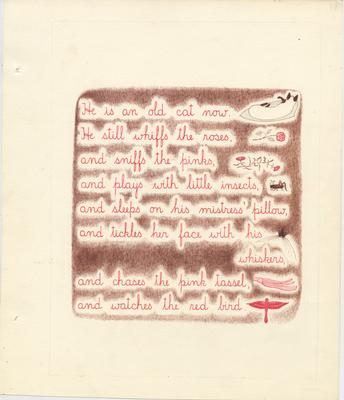 He is an old cat now.
He still whiffs the roses,
and sniffs the pinks,
and plays with little insects,
and sleeps on his mistress' pillow,
and tickles her face with his
whiskers,
and chases the pink tassel,
and watches the red bird